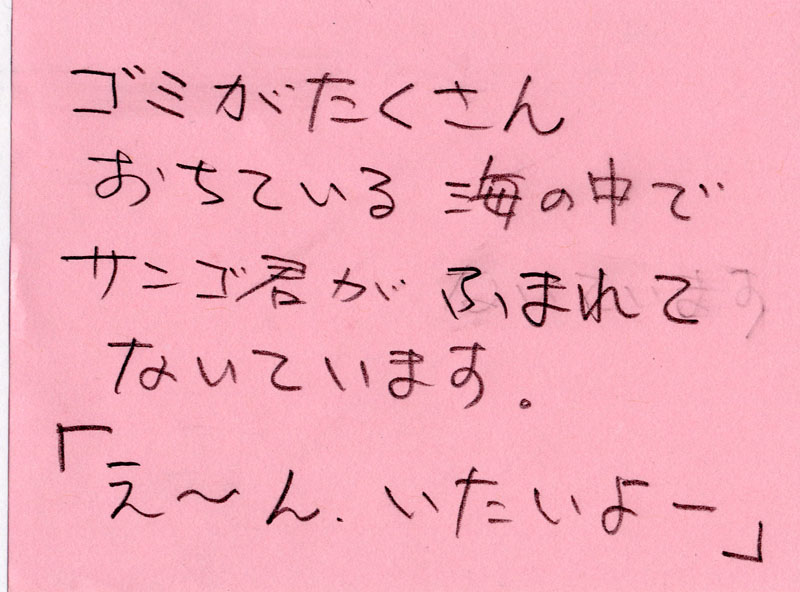 ゴミがたくさん
おちている 海の中で
サンゴ君が ふまれて
ないています。
「え〜ん、いたいよー」